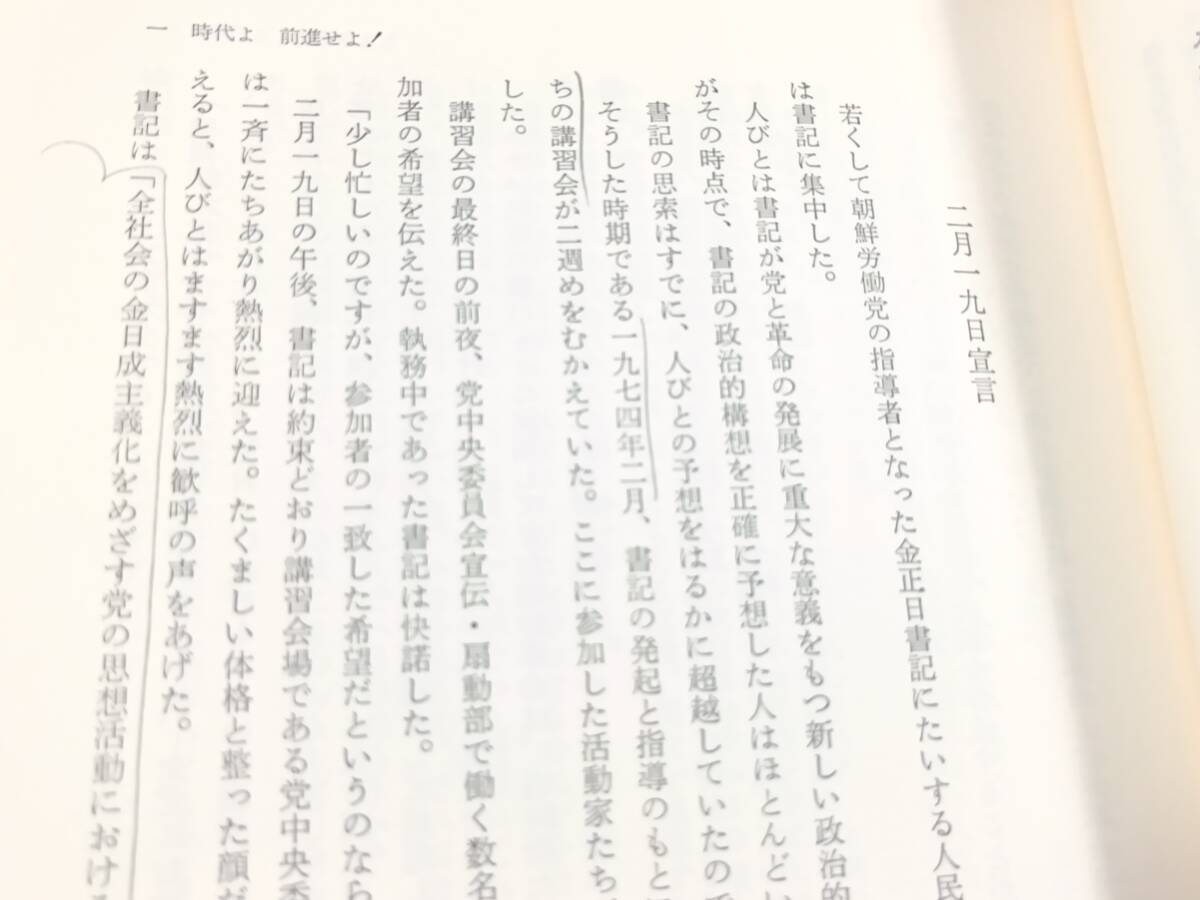 一　時代よ　前進せよ！
二月一九日宣言
若くして朝鮮労働党の指導者となった金正日書記にたいする人民
は書記に集中した。
人びとは書記が党と革命の発展に重大な意義をもつ新しい政治的
がその時点で、書記の政治的構想を正確に予想した人はほとんどい
書記の思索はすでに、人びとの予想をはるかに超越していたので
そうした時期である一九七四年二月、書記の発起と指導のもと
ちの講習会が二週めをむかえていた。ここに参加した活動家たち
した。
講習会の最終日の前夜、党中央委員会宣伝・扇動部で働く数名
加者の希望を伝えた。執務中であった書記は快諾した。
「少し忙しいのですが、参加者の一致した希望だというのなら
二月一九日の午後、書記は約束どおり講習会場である党中央委
は一斉にたちあがり熱烈に迎えた。たくましい体格と整った顔だ
えると、人びとはますます熱烈に歓呼の声をあげた。
書記は「全社会の金日成主義化をめざす党の思想活動における